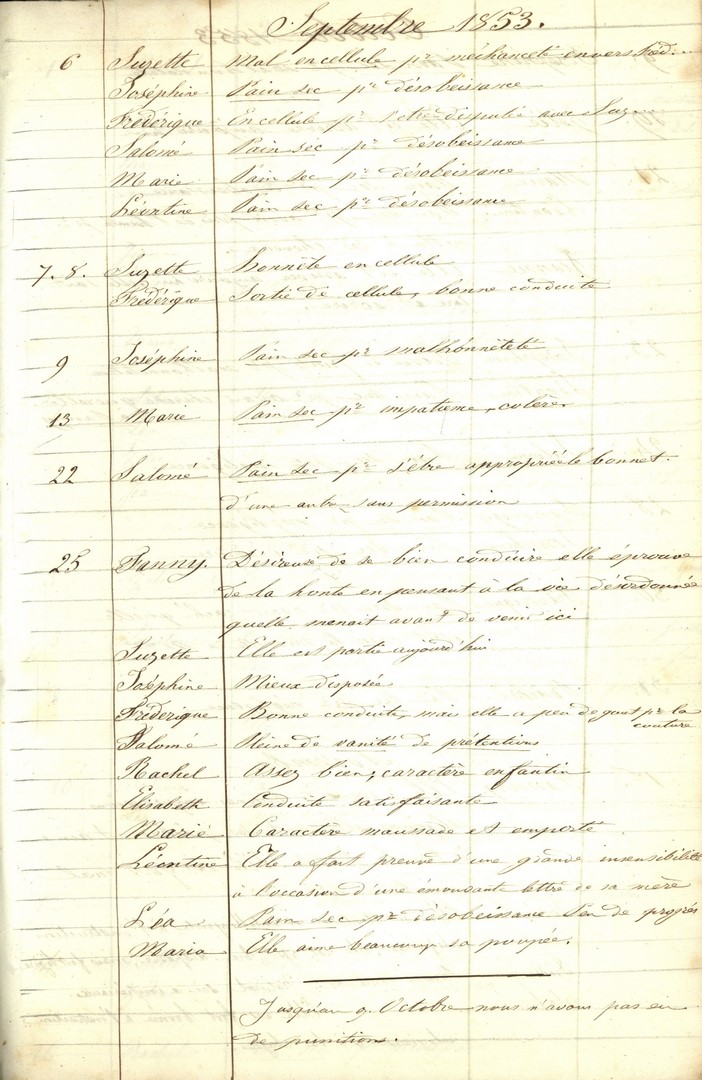 Septembre 1853.
6 Suzette Mal en cellule pr méchanceté envers Fréd...
Joséphine Pain sec pr désobeissance
Frédérique En cellule pr s'etre disputée avec Suz...
Salomé Pain sec pr désobeissance
Marie Pain sec pr désobeissance
Léontine Pain sec pr désobeissance
7. 8. Suzette honnête en cellule
Frédérique Sortie de cellule, bonne conduite
9 Joséphine Pain sec pr malhonnêteté
13 Marie Pain sec pr impatience, colère.
22 Salomé Pain sec pr s'être appropriée le bonnet
d'une autre sans permission
25 Fanny. Désireuse de se bien conduire elle éprouve
de la honte en pensant à la vie désordonnée
quelle menait avant de venir ici
Suzette Elle est partie aujourd'hui
Joséphine Mieux disposée
Fréderique Bonne conduite, mais elle a peu de gout pr la
couture
Salomé Pleine de vanité de prétentions
Rachel Assez bien; caractère enfantin
Elisabeth Conduite satisfaisante
Marie Caractère maussade et emporté
Léontine Elle a fait preuve d'une grande insensibilité
à l'occasion d'une émouvante lettre de sa mère
Léa Pain sec pr désobeissance Peu de progrès
Maria Elle aime beaucoup sa poupée.
Jusqu'au 9 Octobre nous n'avons pas eu
de punitions.